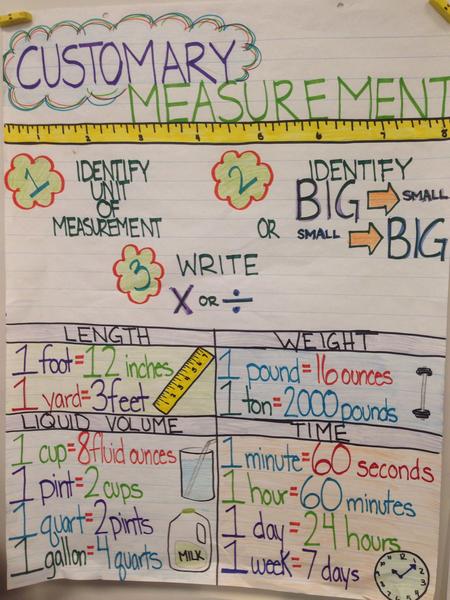 CUSTOMARY
MEASUREMENT
1 2 3 4 5 6 7 8
1
IDENTIFY
UNIT
OF
MEASUREMENT
2
IDENTIFY
BIG SMALL
OR SMALL BIG
3
WRITE
X OR ÷
LENGTH
1 foot=12 inches
1 yard=3feet
WEIGHT
1 pound=16 ounces
1 ton=2000 pounds
LIQUID VOLUME
1 cup=8 fluid ounces
1 pint=2 cups
1 quart=2 pints
1 gallon=4 quarts
MILK
TIME
1 minute=60 seconds
1 hour=60 minutes
1 day=24 hours
1 week=7 days